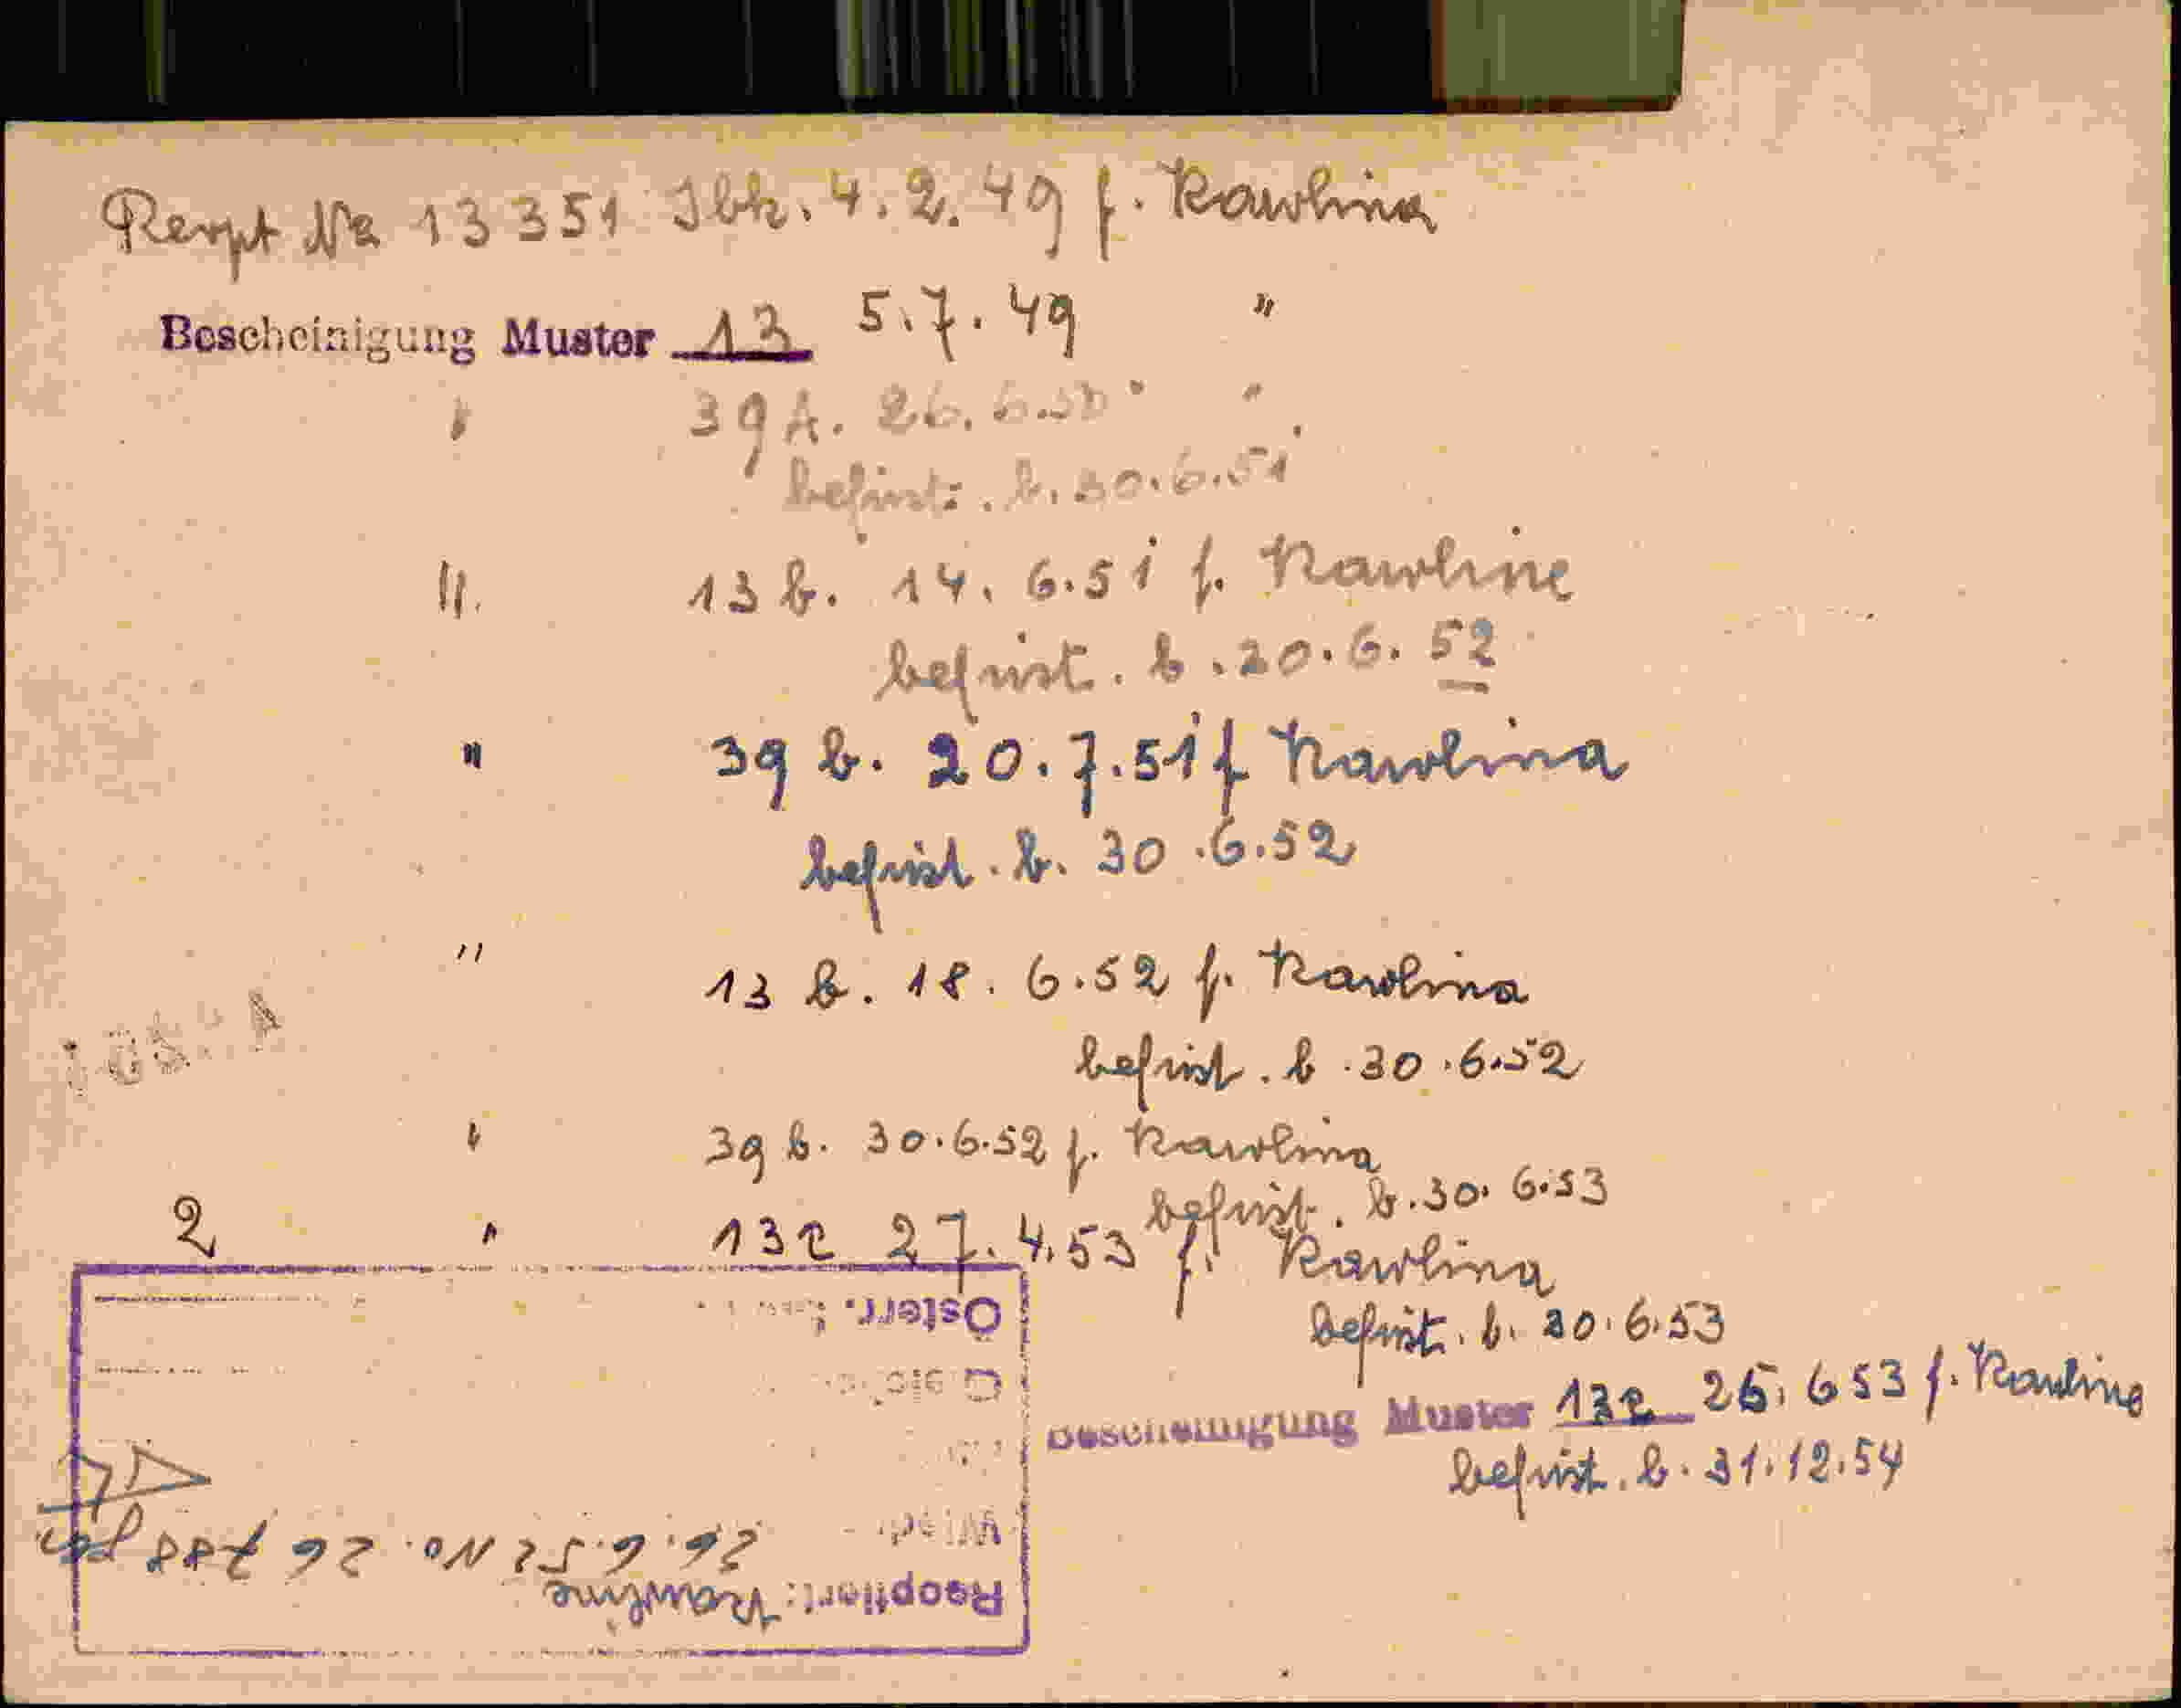 Rexpt No 13 351 Ibk. 4. 2. 49 f. Karolina
Bescheinigung Muster 13 5. 7. 49 "
" 39 A. 26. 6. 50 "
befrist. b. 30. 6. 51
" 13 b. 14. 6. 51 f. Karoline
befrist. b. 20. 6. 52
" 39 b. 20. 7. 51 f Karolina
befrist. b. 30. 6. 52
" 13 b. 18. 6. 52 f. Karolina
befrist. b. 30. 6. 52
" 39 b. 30. 6. 52 f. Karolina
befrist. b. 30. 6. 53
2 " 13 c 27. 4. 53 f. Karolina
befrist. b. 30. 6. 53
Bescheinigung Muster 13 c 26. 6 53 f. Karoline
befrist. b. 31. 12. 54
Reoptiert: Karoline
26. 6. 52 No. 26 788
Österr.